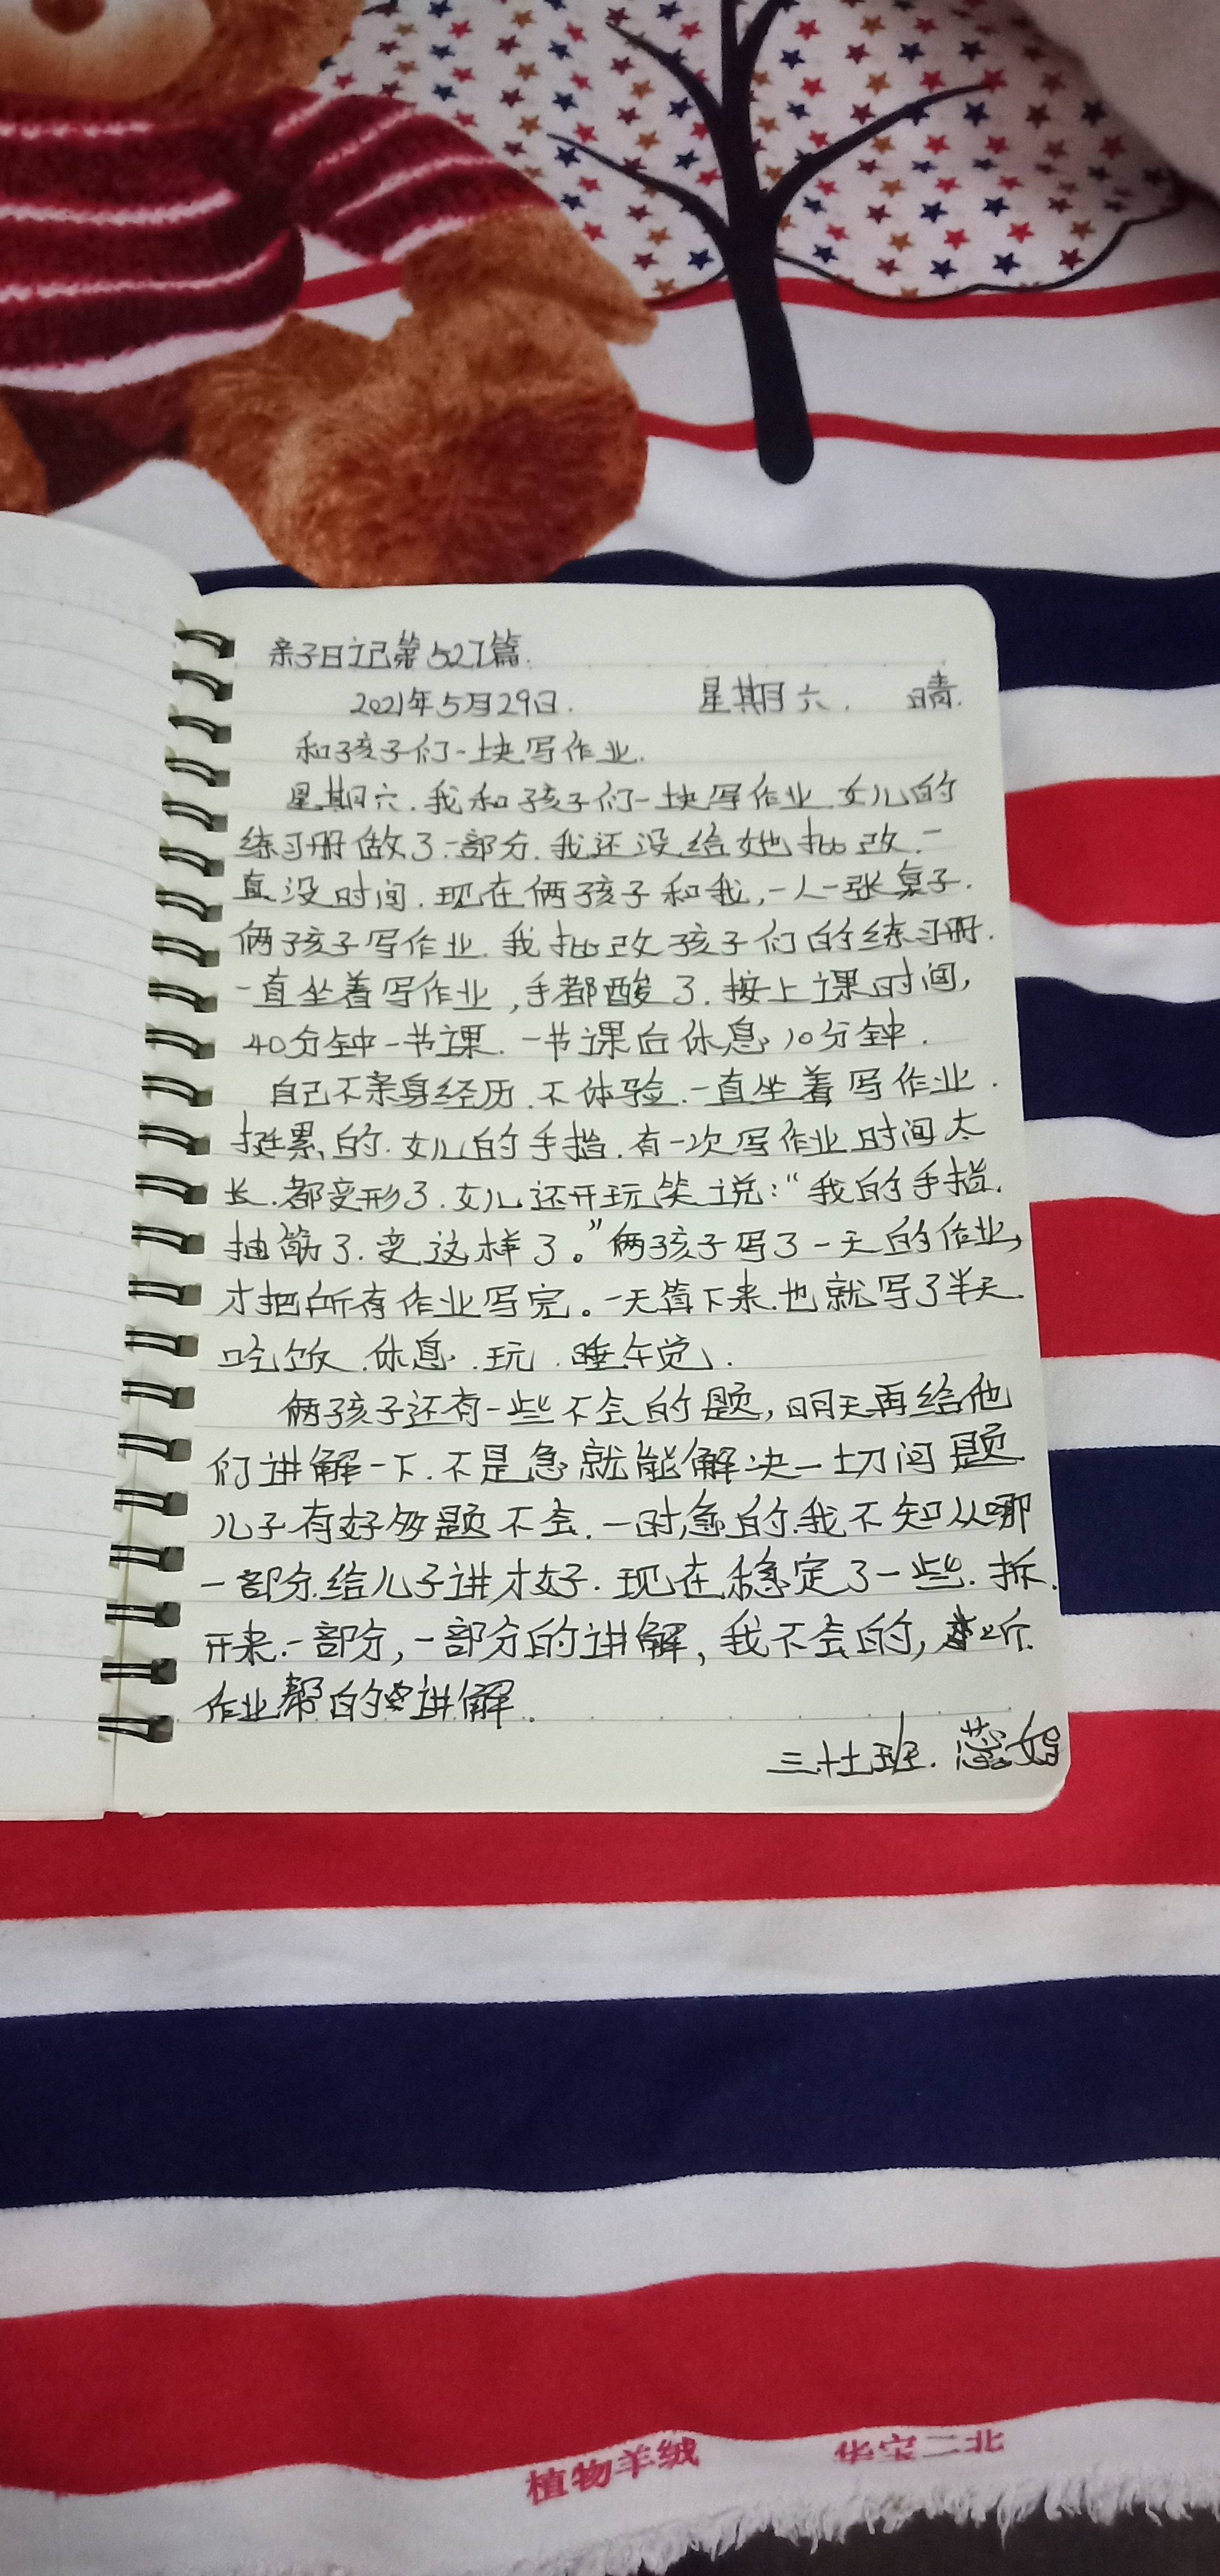 亲子日记第527篇.
2021年5月29日. 星期六. 晴.
和孩子们一块写作业.
星期六.我和孩子们一块写作业.女儿的
练习册做了一部分.我还没给她批改.一
直没时间.现在俩孩子和我,一人一张桌子.
俩孩子写作业.我批改孩子们的练习册.
一直坐着写作业,手都酸了.按上课时间,
40分钟一节课.一节课后休息10分钟.
自己不亲身经历.不体验.一直坐着写作业.
挺累的.女儿的手指.有一次写作业时间太
长.都变形了.女儿还开玩笑说:“我的手指.
抽筋了.变这样了。”俩孩子写了一天的作业,
才把所有作业写完。一天算下来.也就写了半天.
吃饭.休息.玩.睡午觉.
俩孩子还有一些不会的题,明天再给他
们讲解一下.不是急就能解决一切问题.
儿子有好多题不会.一时急的.我不知从哪
一部分.给儿子讲才好.现在稳定了一些.拆.
开来.一部分,一部分的讲解,我不会的,听.
作业帮的讲解.
三.十七班.蕊娟
植物羊绒 华宝二北